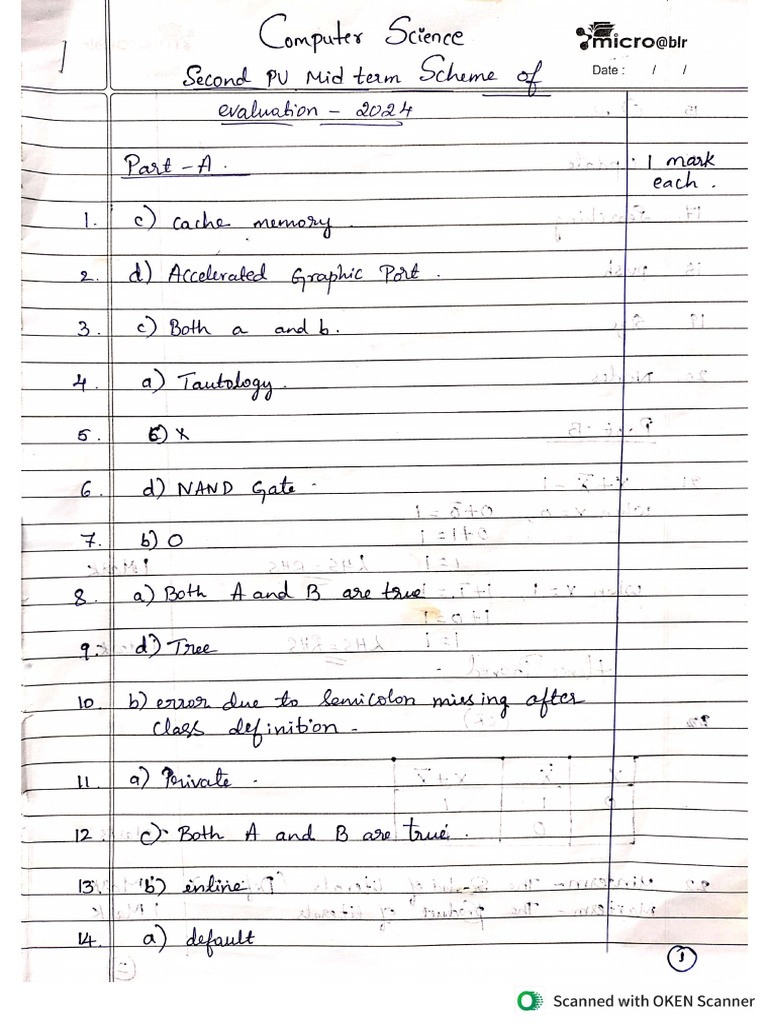 Computer Science
micro@blr
1
Second PU Mid term Scheme of
Date : / /
evaluation - 2024
Part - A .
1 mark
each .
1. c) cache memory .
2. d) Accelerated Graphic Port .
3. c) Both a and b.
4. a) Tautology .
5. c) X
6. d) NAND Gate .
7. b) 0
8. a) Both A and B are true
9. d) Tree
10. b) error due to semicolon missing after
class definition .
11. a) Private .
12. c) Both A and B are true .
13. b) inline
14. a) default
1
Scanned with OKEN Scanner